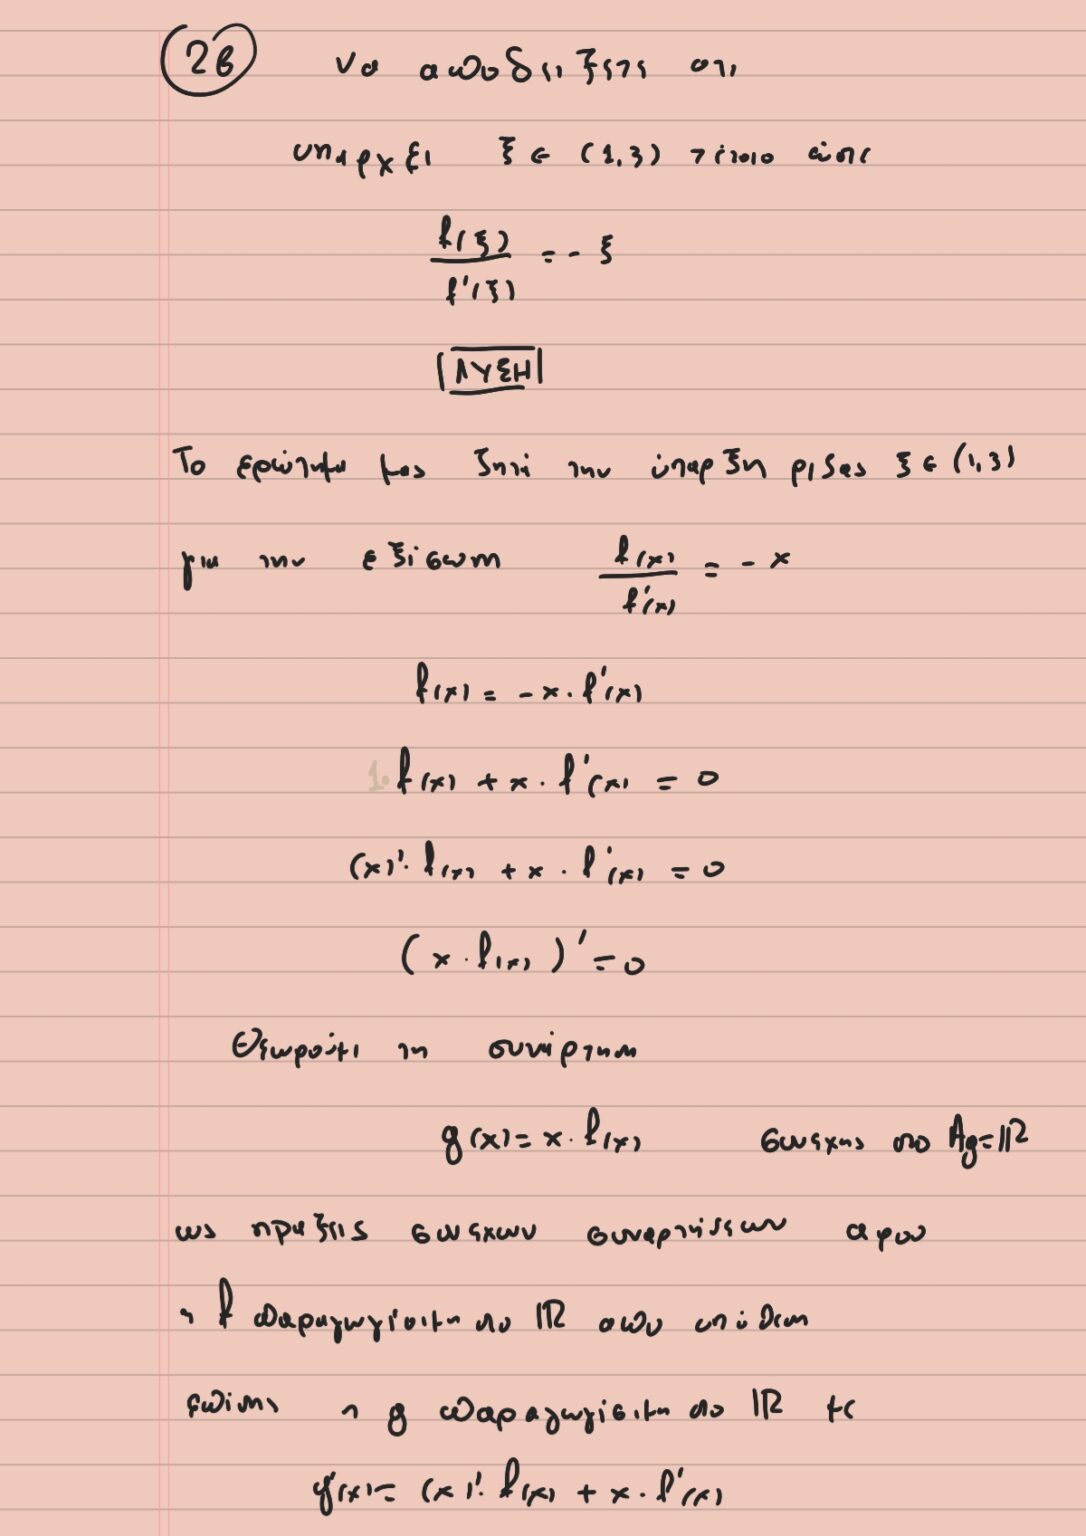 2β Να αποδείξετε οτι
υπαρχει ξ ∈ (1,3) τέτοιο ώστε
f(ξ)/f'(ξ) = -ξ
ΛΥΣΗ
Το ερώτημα μας ζητά την ύπαρξη ριζας ξ ∈ (1,3)
για την εξίσωση f(x)/f'(x) = -x
f(x) = -x · f'(x)
1· f(x) + x · f'(x) = 0
(x)' · f(x) + x · f'(x) = 0
(x · f(x))' = 0
Θεωρούμε τη συνάρτηση
g(x) = x · f(x) συνεχης στο Ag=ℝ
ως πραξεις συνεχων συναρτήσεων αφου
η f παραγωγίσιμη στο ℝ απο υπόθεση
επίσης η g παραγωγίσιμη στο ℝ με
g'(x) = (x)' · f(x) + x · f'(x)